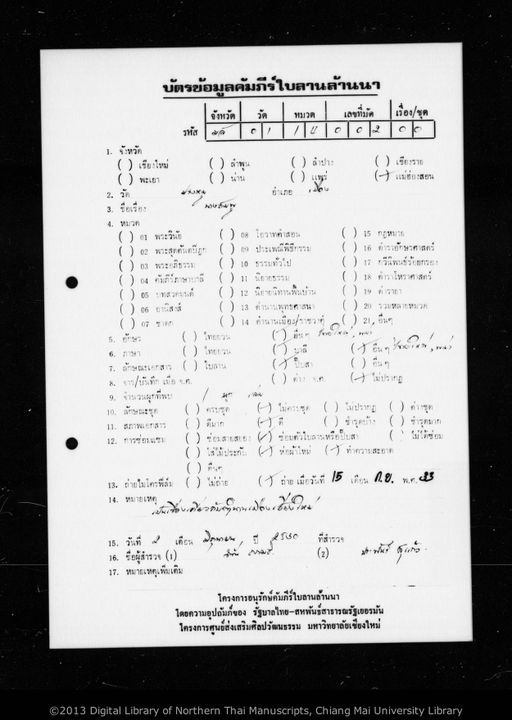 บัตรข้อมูลคัมภีร์ใบลานล้านนา
จังหวัด วัด หมวด เลขที่มัด เรื่อง/ชุด
รหัส มส 0 1 1 ป 0 0 2 0 0
1. จังหวัด
( ) เชียงใหม่ ( ) ลำพูน ( ) ลำปาง ( ) เชียงราย
( ) พะเยา ( ) น่าน ( ) แพร่ (/) แม่ฮ่องสอน
2. วัด อำเภอ เมือง
3. ชื่อเรื่อง
4. หมวด
( ) 01 พระวินัย ( ) 08 โอวาทคำสอน ( ) 15 กฎหมาย
( ) 02 พระสุตตันตปิฎก ( ) 09 ประเพณีพิธีกรรม ( ) 16 ตำราอักษรศาสตร์
( ) 03 พระอภิธรรม ( ) 10 ธรรมทั่วไป ( ) 17 กวีนิพนธ์ร้อยกรอง
( ) 04 คัมภีร์ภาษาบาลี ( ) 11 นิยายธรรม ( ) 18 ตำราโหราศาสตร์
( ) 05 บทสวดมนต์ ( ) 12 นิยายนิทานพื้นบ้าน ( ) 19 ตำรายา
( ) 06 อานิสงส์ ( ) 13 ตำนานพุทธศาสนา ( ) 20 รวมหลายหมวด
( ) 07 ชาดก ( ) 14 ตำนานเมือง/ราชวงศ์ ( ) 21 อื่นๆ
5. อักษร ( ) ไทยยวน (/) อื่นๆ
6. ภาษา ( ) ไทยยวน ( ) บาลี (/) อื่นๆ
7. ลักษณะเอกสาร ( ) ใบลาน (/) ปั๊บสา ( ) อื่นๆ
8. จาร/บันทึก เมื่อ จ.ศ. ( ) ต่าง จ.ศ. (/) ไม่ปรากฏ
9. จำนวนผูกที่พบ 1 ผูก
10. ลักษณะชุด ( ) ครบชุด (/) ไม่ครบชุด ( ) ไม่ปรากฏ ( ) ต่างชุด
11. สภาพเอกสาร ( ) ดีมาก (/) ดี ( ) ชำรุดบ้าง ( ) ชำรุดมาก
12. การซ่อมแซม ( ) ซ่อมสายสยอง (/) ซ่อมตัวใบลานหรือปั๊บสา ( ) ไม่ได้ซ่อม
( ) ใส่ไม้ประกับ (/) ห่อผ้าใหม่ (/) ทำความสะอาด
( ) อื่นๆ
13. ถ่ายไมโครฟิล์ม ( ) ไม่ถ่าย (/) ถ่าย เมื่อวันที่ 15 เดือน ก.ย. พ.ศ. 33
14. หมายเหตุ
15. วันที่ 2 เดือน มิถุนายน ปี 2530 ที่สำรวจ
16. ชื่อผู้สำรวจ (1) (2)
17. หมายเหตุเพิ่มเติม
โครงการอนุรักษ์คัมภีร์ใบลานล้านนา
โดยความอุปถัมภ์ของ รัฐบาลไทย-สหพันธ์สาธารณรัฐเยอรมัน
โครงการศูนย์ส่งเสริมศิลปวัฒนธรรม มหาวิทยาลัยเชียงใหม่
©2013 Digital Library of Northern Thai Manuscripts, Chiang Mai University Library